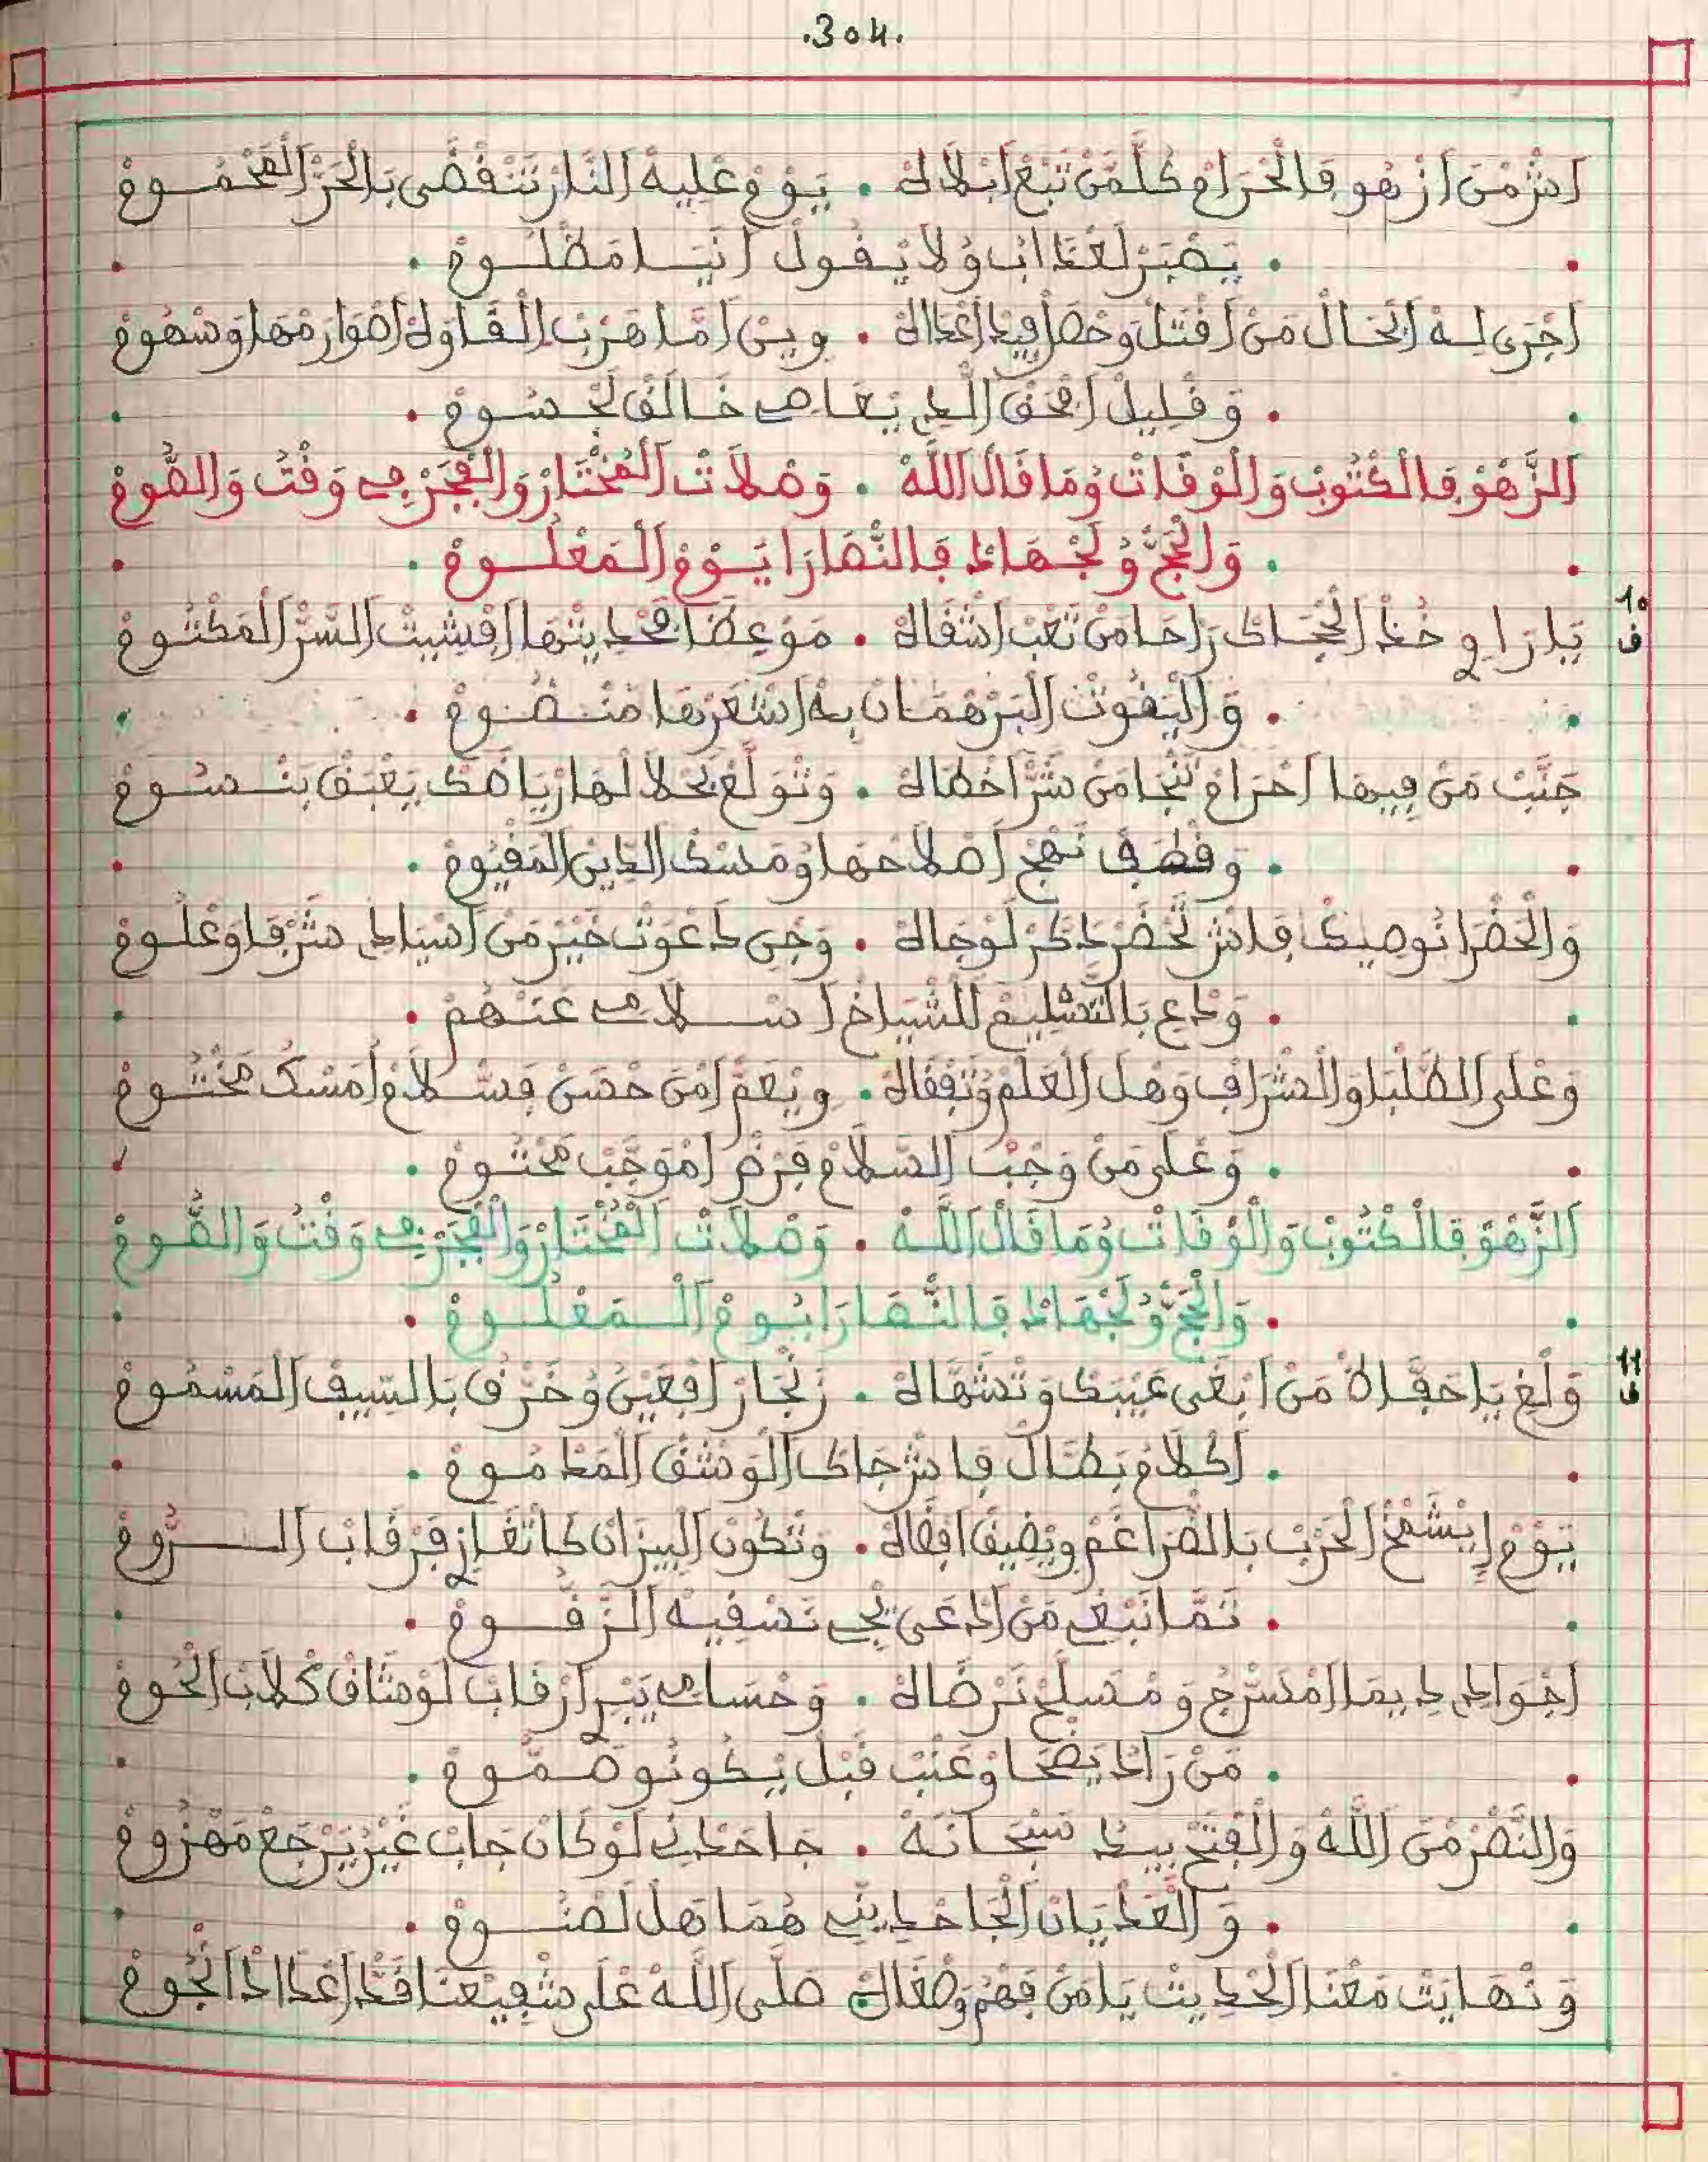 .304.
اشْ مْن ازْهو فالْحْرامْ كلّ مَن تْبَع ابْلاهْ . يَوْمْ عليهْ النّار تنْفْضى بالْحَرّ المَحْمُومْ
. يصْبَر لعْدابْ وُلا يقُولْ انَيَا مَظْلُومْ .
اجْرى لِهْ الحَالْ مَن اقْتَلْ وحْصَل فيدْ اعْداهْ . وين امّا هْربْ الْقَاوَهْ اصْوارَمْها وسْهُومْ
. وَقْليلْ احْمَق الّدِي يعَاصِي خَالَقْ لجْسُومْ .
الزّهوْ فالْكْتُوبْ والْوْقاتْ وُمَا قال اللّهْ . وَصْلاتْ المُخْتارْ والْفْجَرْ فِي وَقْتُ والصُّومْ
. والْحَجّ وُلجْهادْ فالنّصَارَا يَوْمْ المَعْلُومْ .
10
ف
يَا رَاوِي خُذْ الحْجَاكْ رَاحَا مَن تَعْب اشْقَاهْ . مَوْعِضَا فحْديثْها افْشِيتْ السّرْ المَكْتُومْ
. وَالْيَقوتْ البَرْهْمَانْ بِهْ اشْعَرْها مَنْضُومْ .
جَنّبْ مَن فيها احْرامْ تنْجَا مَن شَرّ اخْطاهْ . وَتْوَلّعْ بحْلالْها ارْيَاضكْ يَعْبَقْ بَنْسُومْ
. وقْصَفْ نَهْج اصْلاحْها وُمَسْكْ الدّين المَقْيُومْ .
والْحَضْرا نُوصِيكْ فاشْ تحْضَر دَكّرْ لوْجَاهْ . وَجِي دَعْوَتْ خَيْر مَن اسْيَادِي شَرْفا وعْلُومْ
. وَدْعِ بالتّسْليمْ للشّياخْ اسْلامِي عَنْهُمْ .
وعْلى الطّلْبَا والشْرافْ وهلْ العَلْم وُتَفْقَاهْ . ويْعَمّ امْن حْضَنْ فسْلامْ امْسَكْ مَخْتُومْ
. وَعْلى مَن وَجْبْ السّلامْ فَرْضْ امْوَجّبْ مَحْتُومْ .
الزّهوْ فالْكْتُوبْ والْوْقاتْ وُمَا قال اللّهْ . وَصْلاتْ المُخْتارْ والْفْجَرْ فِي وَقْتُ والصُّومْ
. والْحَجّ وُلجْهادْ فالنّصَارَا يُومْ المَعْلُومْ .
11
ف
وَلْغِ يَا حَفّاظْ مَن ابْغى عَيبكْ وَتْشَهّاهْ . زَنْجَارْ افْعَيْنُ وُخَرْقُ بالسّيفْ المَسْمُومْ
. اكْلامْ بَطّالْ فاشْ جَاكْ الْوَشْق المَدْمُومْ .
يَوْم ايْشَمّخْ الحَرْبْ بالضّراغَم ويْضِيقْ افْضاهْ . وَتْكونْ البيزانْ كاتْغَازِي فَرْقابْ الرُّومْ
. تَمّا نَبْغِي مَن ادْعى يجِي نَسْقِيهْ الزّقُومْ .
اجْوادِي ديمَا امْسَرْجْ وَمْسَلّحْ نَرْضَاهْ . وَحْسامِي يَبْرِي ارْقابْ لَوْشاقْ كْلابْ الحُومْ
. مَن رَادْ يَصْحَا وعْتَبْ قَبْلْ يكونُو صُمُّومْ .
والنّصْر مْن اللّهْ والْفْتَحْ بيدْ سُبْحَانَهْ . جَاحَدْنِي لوْ كانْ جَابْ غَيْر يَرْجَعْ مَهْزُومْ
. وَالْعَدْيَانْ الجَاحْدينِّي هُمَا هْلْ لصْنُومْ .
وَنْهَايَتْ مَعْنَا الْحْديثْ يَا مَنْ فْهَمْ وصْغَاهْ . صَلّى اللّهْ عْلى شْفِيعْنَا قَدّ اعْدادْ انْجُومْ